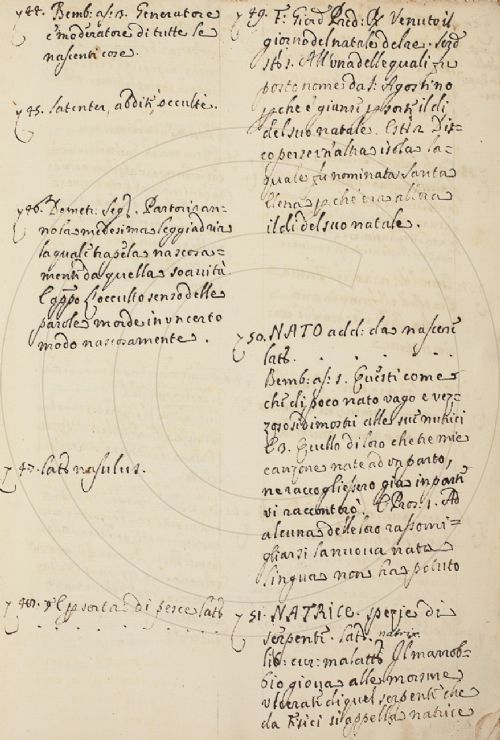 744. Bemb: as: 3. Generatore
e moderatore di tutte le
nascenti cose.
745. latenter, abditè, occultè.
746. Demet: Seg. Partoriran=
no la medesima leggiadria
la quale trapela nascosa=
mente da quella soavità
E l'occulto senso delle
parole morde in un certo
modo nascosamente.
747. latè nasulus.
748. E sorta di pesce latè
749. F: Giord: Pred: R. Venuto il
giorno del natale del re.
sto: 1. All'una delle quali fu
posto nome da S. Agostino
che è giunse il di
del suo natale. Disco=
perse un'altra isola la=
quale fu nominata Santa
Elena pchè era allora
il di del suo natale.
750. NATO add: da nascere
latè.
Bemb: as: 1. Questi come
che di poco nato vago e vez=
zoso si dimostri alle sue nutrici
E 3. Quello di loro che tre mie
canzone nate ad un parto,
ne raccogliessero già in parte
vi racconterò. E Pros: 1. Ad
alcuna delle loro rassomi=
gliarsi la nuova nata
lingua non ha potuto
751. NATRICE. spezie di
serpente. latè. natrix
lib: cur: malatt: Il marrob=
bio giova alle morsure
ulcerate di quel serpente che
da Fisici si appella natrice